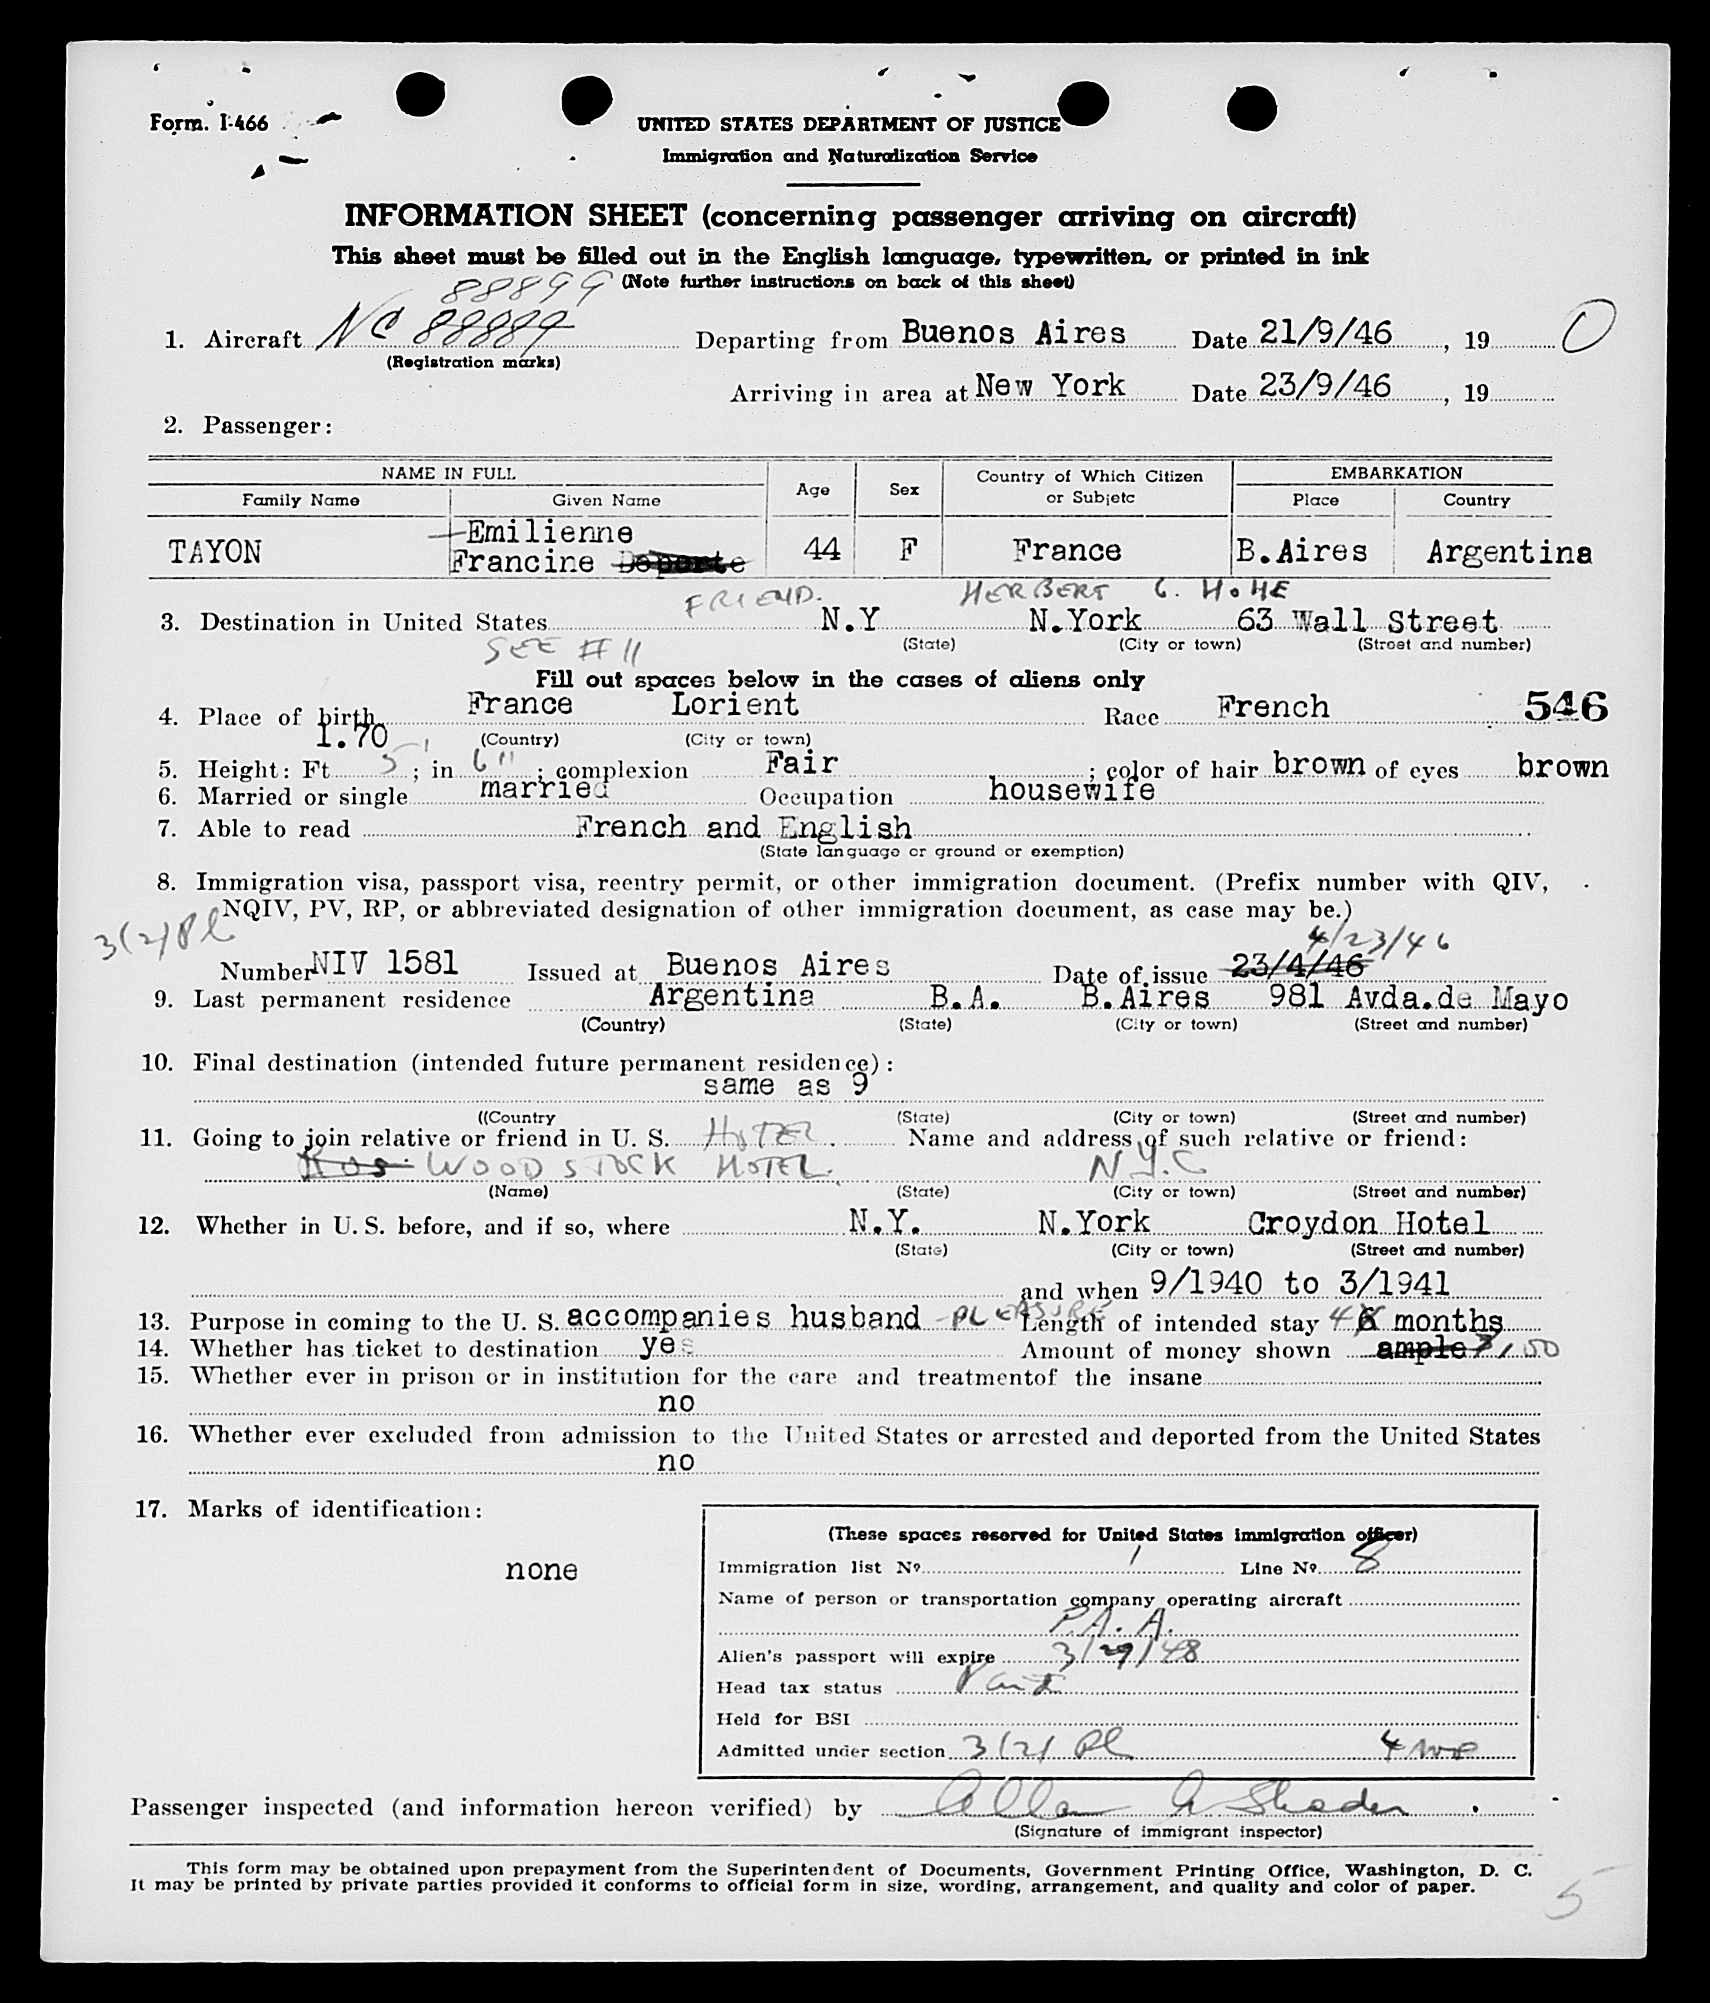 Form. I-466
UNITED STATES DEPARTMENT OF JUSTICE
Immigration and Naturalization Service
INFORMATION SHEET (concerning passenger arriving on aircraft)
This sheet must be filled out in the English language, typewritten, or printed in ink
88899 (Note further instructions on back of this sheet)
1. Aircraft NC 88889 Departing from Buenos Aires Date 21/9/46, 19 0
(Registration marks)
Arriving in area at New York Date 23/9/46, 19
2. Passenger:
NAME IN FULL Age Sex Country of Which Citizen or Subjetc EMBARKATION
Family Name Given Name Place Country
TAYON Emilienne Francine 44 F France B.Aires Argentina
FRIEND. HERBERT
3. Destination in United States N.Y N.York 63 Wall Street
SEE # 11 (State) (City or town) (Street and number)
Fill out spaces below in the cases of aliens only
4. Place of birth France Lorient Race French 546
1.70 (Country) (City or town)
5. Height: Ft 5 ; in 6" ; complexion Fair ; color of hair brown of eyes brown
6. Married or single married Occupation housewife
7. Able to read French and English
(State language or ground or exemption)
8. Immigration visa, passport visa, reentry permit, or other immigration document. (Prefix number with QIV,
NQIV, PV, RP, or abbreviated designation of other immigration document, as case may be.)
3(2)Pl 4/23/46
Number NIV 1581 Issued at Buenos Aires Date of issue 23/4/46
9. Last permanent residence Argentina B.A. B.Aires 981 Avda.de Mayo
(Country) (State) (City or town) (Street and number)
10. Final destination (intended future permanent residence):
same as 9
((Country (State) (City or town) (Street and number)
11. Going to join relative or friend in U. S. HOTEL. Name and address of such relative or friend:
WOODSTOCK HOTEL. N.Y.C
(Name) (State) (City or town) (Street and number)
12. Whether in U. S. before, and if so, where N.Y. N.York Croydon Hotel
(State) (City or town) (Street and number)
and when 9/1940 to 3/1941
13. Purpose in coming to the U. S. accompanies husband - PLEASURE Length of intended stay 4 6 months
14. Whether has ticket to destination yes Amount of money shown ample
15. Whether ever in prison or in institution for the care and treatmentof the insane
no
16. Whether ever excluded from admission to the United States or arrested and deported from the United States
no
17. Marks of identification:
none
(These spaces reserved for United States immigration officer)
Immigration list Nº 1 Line Nº 8
Name of person or transportation company operating aircraft
P.A.A.
Alien's passport will expire 3/29/48
Head tax status Paid
Held for BSI
Admitted under section 3(2) Pl 4 mo
Passenger inspected (and information hereon verified) by
(Signature of immigrant inspector)
This form may be obtained upon prepayment from the Superintendent of Documents, Government Printing Office, Washington, D. C.
It may be printed by private parties provided it conforms to official form in size, wording, arrangement, and quality and color of paper.
5